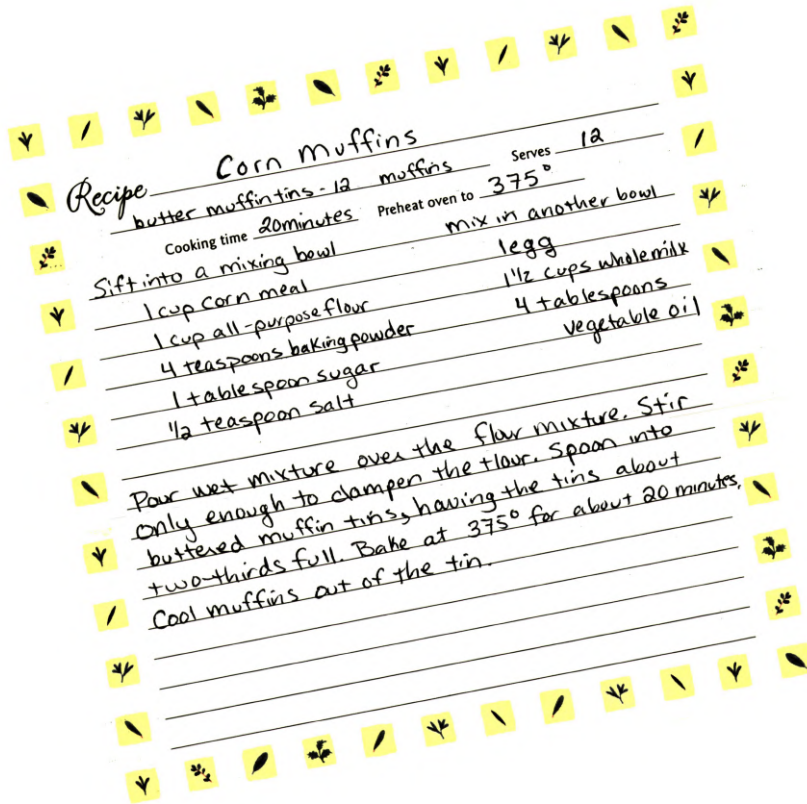 Recipe Corn Muffins
butter muffin tins - 12 muffins Serves 12
Cooking time 20minutes Preheat oven to 375°
Sift into a mixing bowl
1 cup corn meal
1 cup all-purpose flour
4 teaspoons baking powder
1 tablespoon sugar
1/2 teaspoon salt
mix in another bowl
1egg
1 1/2 cups whole milk
4 tablespoons
vegetable oil
Pour wet mixture over the flour mixture. Stir
only enough to dampen the flour. Spoon into
buttered muffin tins, having the tins about
two-thirds full. Bake at 375° for about 20 minutes.
Cool muffins out of the tin.